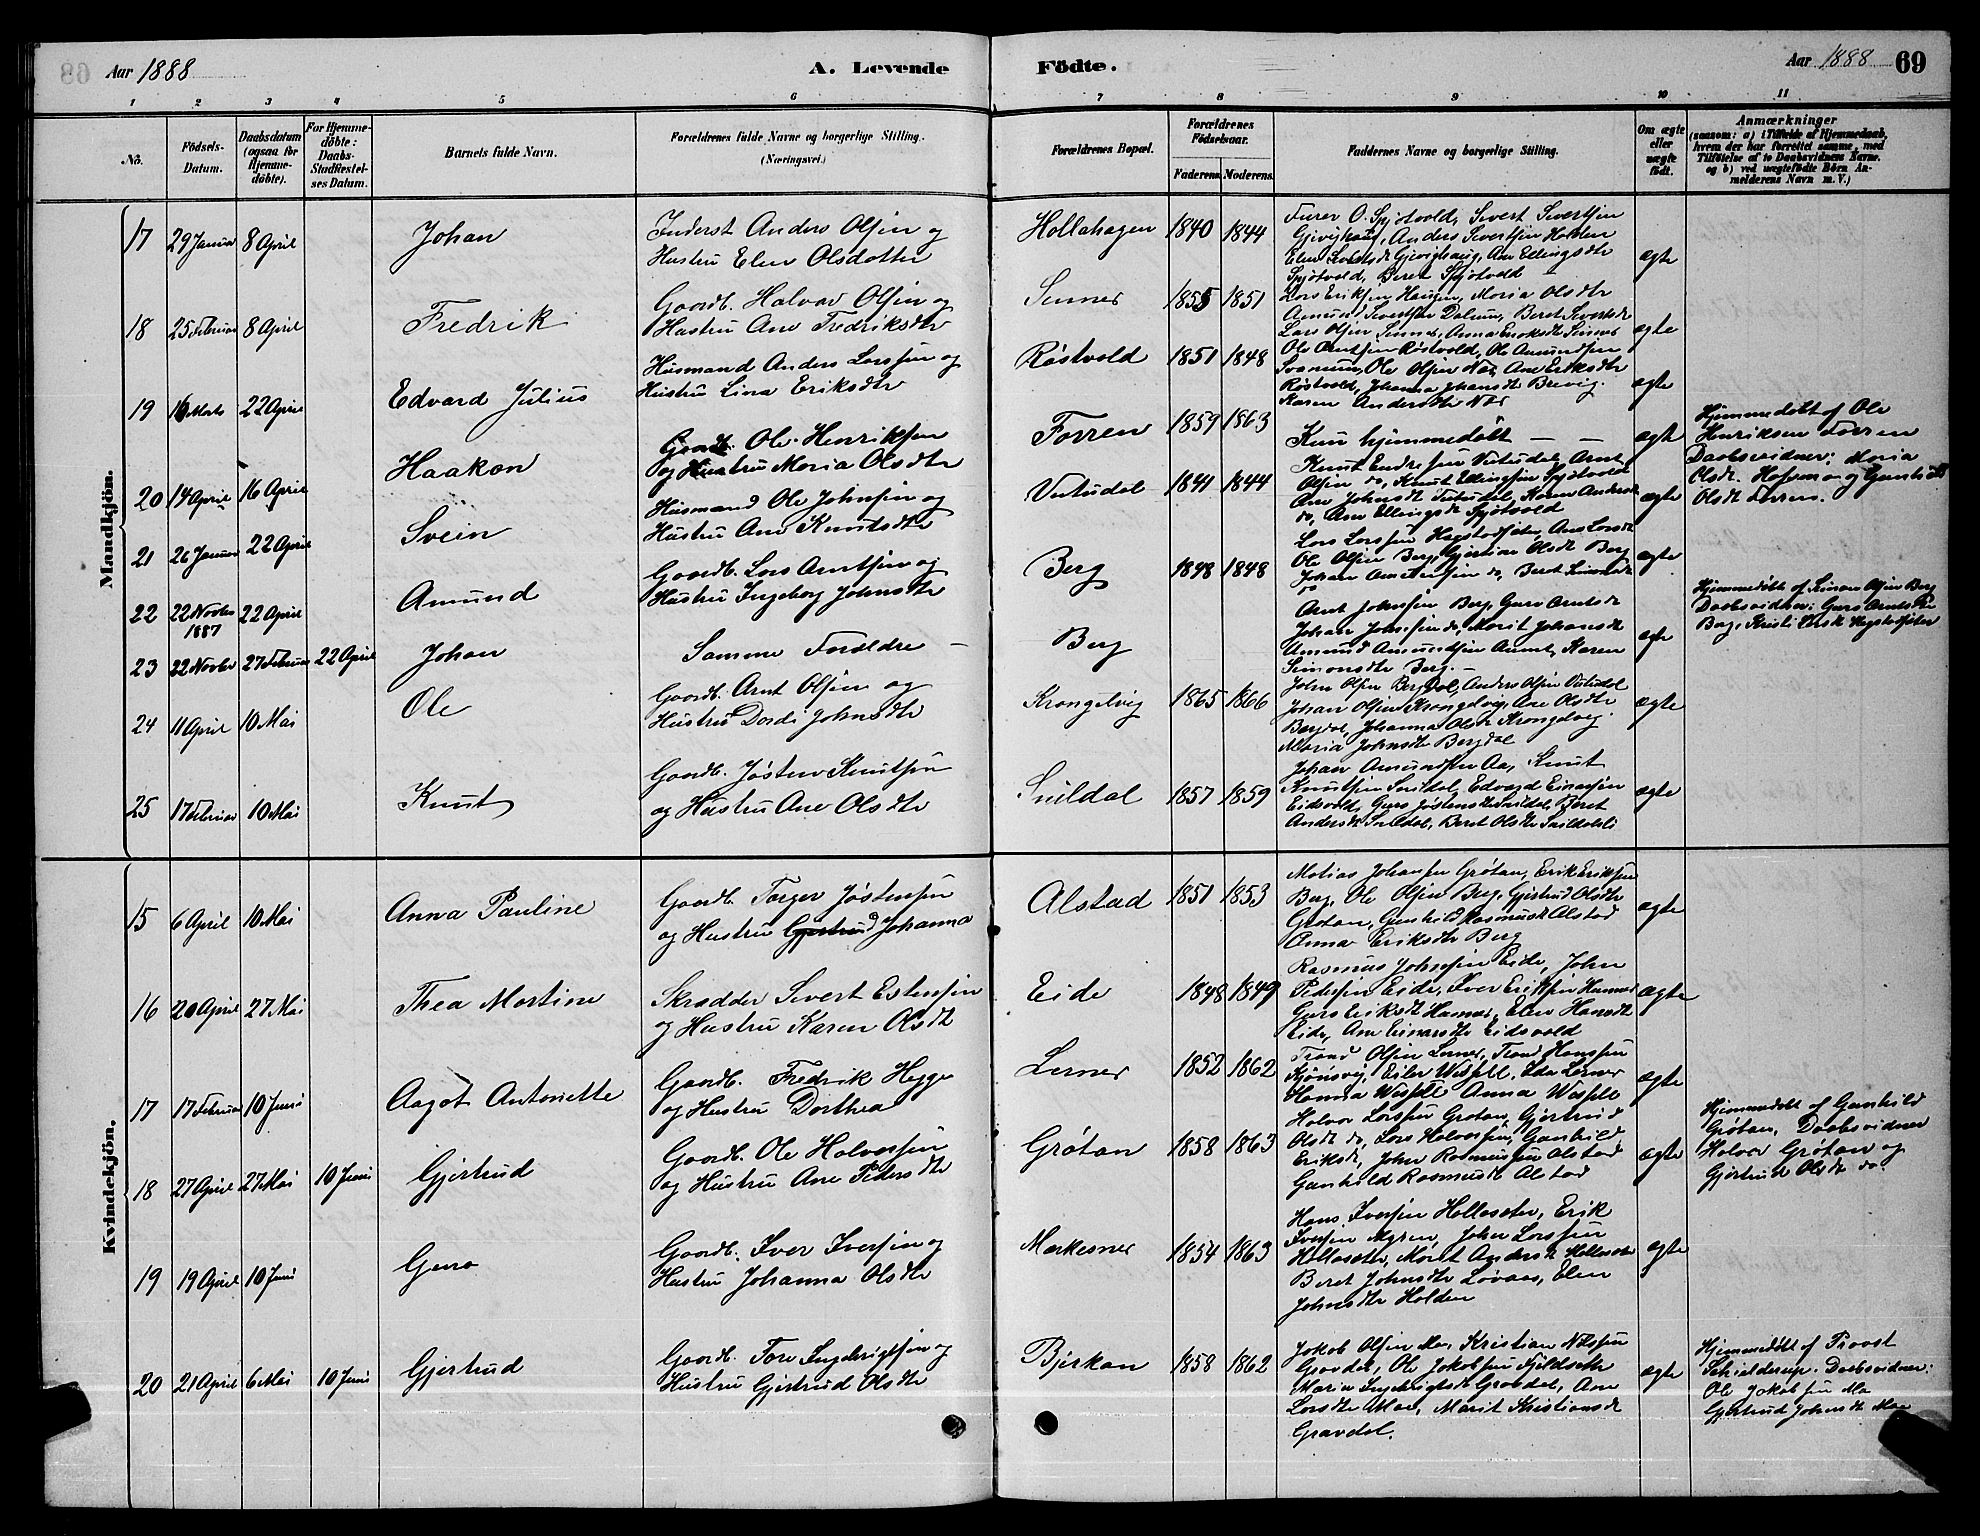 Aar 1888
A. Levende
Födte.
Aar 1888
69
1 2 3 4 5 6 7 8 9 10 11
No.
Födsels-
Datum.
Daabsdatum
(ogsaa for
Hjemme-
döbte).
For Hjemme-
döbte:
Daabs-
Stadfæstel-
ses Datum.
Barnets fulde Navn.
Forældrenes fulde Navne og borgerlige Stilling.
(Næringsvei.)
Forældrenes Bopæl.
Forældrenes
Födselsaar.
Faderens. Moderens.
Faddernes Navne og borgerlige Stilling.
Om ægte
eller
uægte
födt.
Anmærkninger
(saasom: a) i Tilfælde af Hjemmedaab,
hvem der har forrettet samme, med
Tilföielse af to Daabsvidners Navne.
og b) ved uægtefödte Börn An-
melderens Navn m. V.)
Mandkjön.
17 29 Januar 8 April
Johan
Inderst Anders Olsen og
Hustru Elen Olsdatter
Hollahagen 1840 1844
Sivert Sivertsen
Anders Sivertsen Holden
Ane Ellingsdtr
Beret Spjötvold
ægte
18 25 Februar 8 April
Fredrik
Gaardb. Halvor Olsen og
Hustru Ane Fredriksdtr
Sinnes 1855 1851
Lars Eriksen Haugen, Maria Olsdtr
Amund Sivertsen Dalum, Beret Sivertsdt
Lars Olsen Sinnes, Anna Eriksdt Sinnes
ægte
19 16 Marts 22 April
Edvard Julius
Husmand Anders Larssen og
Hustru Lina Eriksdtr
Röstvold 1851 1848
Ole Arntsen Röstvold, Ole Amundsen
Ole Olsen Næs, Ane Eriksdtr
Röstvold, Johanna Johansdt Brevig.
Karen Andersdtr Næs
ægte
20 14 April 16 April
Haakon
Gaardb. Ole Henriksen
og Hustru Maria Olsdtr
Forren 1859 1863
Kun hjemmedöbt — —
ægte
Hjemmedöbt af Ole
Henriksen Forren
Daabsvidner: Maria
Olsdt. Hofsmo og Gunhild
Olsdt Forren.
21 26 Januar 22 April
Svein
Husmand Ole Johnsen og
Hustru Ane Knutsdtr
Vutudal 1841 1844
Knut Endresen Vutudal, Arnt
Olsen do, Knut Ellingsen Spjötvold
Ane Johnsdt Vutudal, Karen Andersdt
do, Ane Ellingsdt Spjötvold
ægte
22 22 Novbr
1887
22 April
Amund
Gaardb. Lars Arntsen og
Hustru Ingeborg Johnsdtr
Berg 1848 1848
Lars Larssen Hegstadsæter, Ane Larsdt
Ole Olsen Berg, Gjertine Olsdt Berg
Johan Arntsen do, Beret Simonsdt
do
ægte
23 22 Novbr 27 Februar 22 April
Johan
Samme Foreldre —
Berg
Arnt Johnsen Berg, Guro Arntsdt
Johan Johnsen do, Marit Johansdt
Amund Amundsen Aunet, Karen
Simonsdtr Berg. —
ægte
Hjemmedöbt af Simon Olsen Berg
Daabsvidner: Guro Arntsdt
24 11 April 10 Mai
Ole
Gaardb. Arnt Olsen og
Hustru Dordi Johnsdtr
Krongelvig 1865 1866
John Olsen Bergdal, Anders Olsen Vutudal
Johan Olsen Krongelvig, Ane Olsdtr
Bergdal, Johanna Olsdt Krongelvig
Maria Johnsdtr Bergdal
ægte
25 17 Februar 10 Mai
Knut
Gaardb. Jösten Knutsen
og Hustru Ane Olsdtr
Snildal 1857 1859
Johan Amundsen Aa, Knut
Knutsen Snildal, Edvard Einarsen
Eidsvold, Guro Jöstensdt Snildal, Beret
Andersdt Snildal, Beret Olsdt Snildalsli
ægte
Kvindekjön.
15 6 April 10 Mai
Anna Pauline
Gaardb. Torger Jöstensen
og Hustru Gjertrud Johanna
Alstad 1851 1853
Matias Johansen Grötan, Erik Eriksen
Berg, Ole Olsen Berg, Gjertrud Olsdtr
Grötan, Gunhild Rasmusdt Alstad
Anna Eriksdtr Berg
ægte
16 20 April 27 Mai
Thea Martine
Skrædder Sivert Estensen
og Hustru Karen Olsdt
Eide 1848 1849
Rasmus Johnsen Eide, John
Pedersen Eide, Iver Eriksen Hamar
Guro Eriksdt Hamar, Elen Hansdt
Eide, Ane Einarsdtr Eidsvold
ægte
17 17 Februar 10 Juni
Aagot Antonette
Gaardb. Fredrik Hegge
og Hustru Dorthea
Lerner 1852 1862
Trond Olsen Lerner, Trond Hanssen
Kjönsvig, Eiler Wessel, Ida Lerner
Hanna Wessel Anna Wessel
ægte
18 27 April 27 Mai 10 Juni
Gjertrud
Gaardb. Ole Halvorsen
og Hustru Ane Pedersdtr
Grötan 1858 1863
Halvor Larssen Grötan, Gjertrud
Olsdt do, Lars Halvorsen, Gunhild
Eriksdt, John Rasmussen Alstad
Gunhild Rasmusdt Alstad
ægte
Hjemmedöbt af Gunhild
Grötan, Daabsvidner
Halvor Grötan og
Gjertrud Olsdt do
19 19 April 10 Juni
Guro
Gaardb. Iver Iversen og
Hustru Johanna Olsdtr
Markesnes 1854 1863
Hans Iversen Hollasæter, Erik
Iversen Myren, John Larssen
Hollasæter, Marit Andersdt Hollasæter
Beret Johnsdtr Lövaas, Elen
Johnsdtr Holden
ægte
20 21 April 6 Mai 10 Juni
Gjertrud
Gaardb. Tore Ingebrigtsen og
Hustru Gjertrud Olsdtr
Bjerkan 1858 1862
Jakob Olsen Moe, Kristian Nilssen
Gravdal, Ole Jakobsen Fjeldsæter
Maria Ingebrigtsdt Gravdal, Ane
Larsdtr Moe, Marit Kristiansdt
Gravdal.
ægte
Hjemmedöbt af Provst
Schjelderup. Daabsvidner:
Ole Jakobsen Moe
Gjertrud Johnsdt Moe